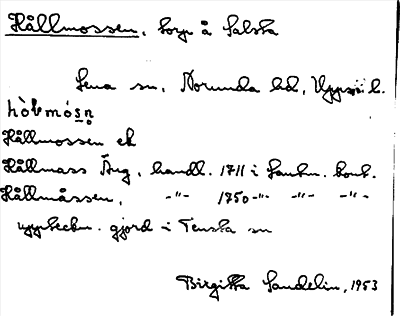 Hållmossen, torp å Salsta
Lena sn, Norunda hd, Upps. l.
Hållmossen ek
Hållmass Äng, handl. 1711 i Lantm. kont.
Hållmåssen, -"- 1750 -"- -"- -"-
uppteckn. gjord i Tensta sn
Birgitta Sandelin, 1953